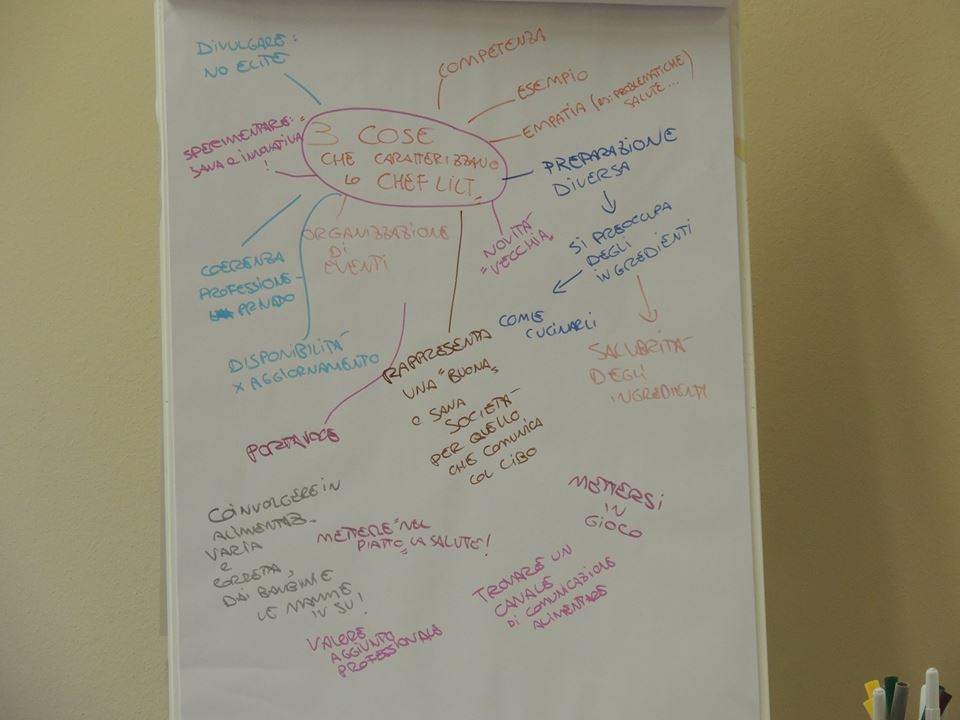 DIVULGARE:
NO ELITE
COMPETENZA
ESEMPIO
EMPATIA (es: PROBLEMATICHE)
SALUTE...
SPERIMENTARE:
SANA e INNOVATIVA
!
3 COSE
CHE CARATTERIZZANO
LO CHEF LILT
PREPARAZIONE
DIVERSA
SI PREOCCUPA
DEGLI
INGREDIENTI
COME
CUCINARLI
SALUBRITÀ
DEGLI
INGREDIENTI
NOVITÀ
"VECCHIA"
ORGANIZZAZIONE
DI
EVENTI
COERENZA
PROFESSIONE-
PRIVADO
DISPONIBILITÀ
X AGGIORNAMENTO
RAPPRESENTA
UNA "BUONA"
e SANA
SOCIETÀ
PER QUELLO
CHE COMUNICA
COL CIBO
PORTAVOCE
COINVOLGERE IN
ALIMENTAZ.
VARIA
e
CORRETTA,
DAI BAMBINI E
LE MAMME
IN SU!
METTERE NEL
PIATTO LA SALUTE!
METTERSI
IN
GIOCO
TROVARE UN
CANALE
DI COMUNICAZIONE
ALIMENTARE
VALORE
AGGIUNTO
PROFESSIONALE